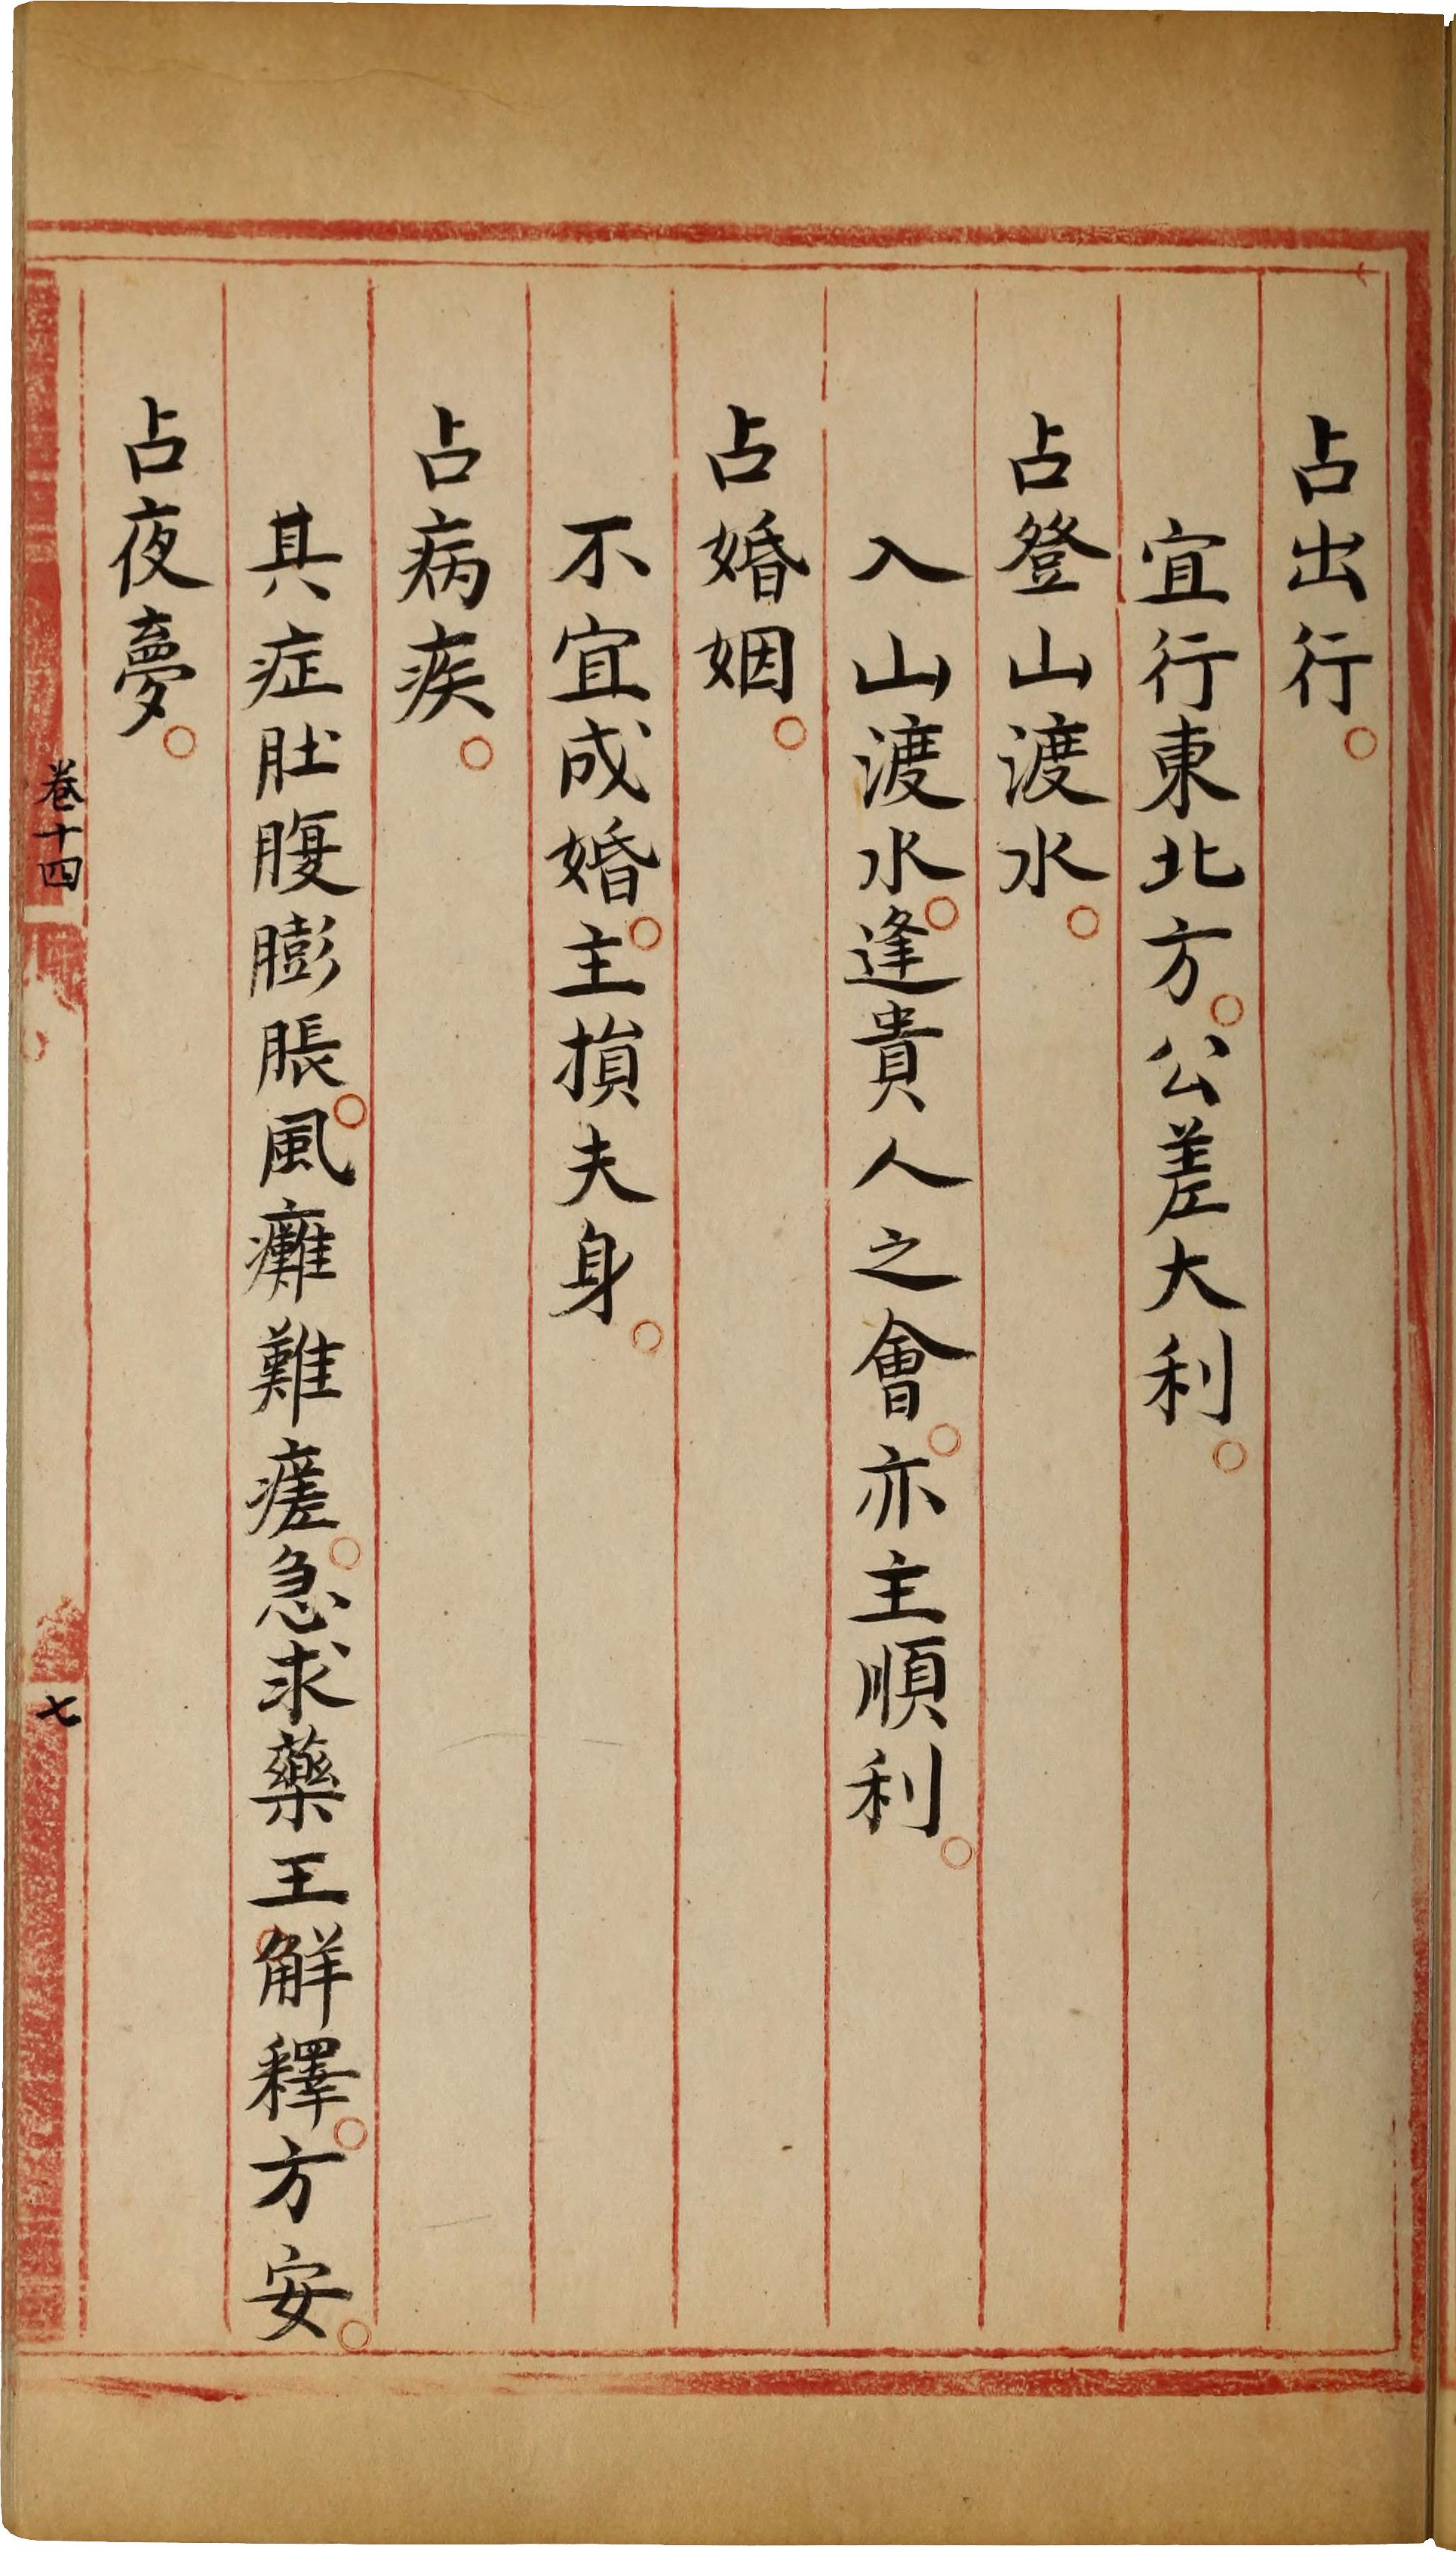 占出行。
宜行東北方。公差大利。
占登山渡水。
入山渡水。逢貴人之會。亦主順利。
占婚姻。
不宜成婚。主損夫身。
占病疾。
其症肚腹膨脹。風癱難瘥。急求藥王。解釋。方安。
占夜夢。
卷十四
七